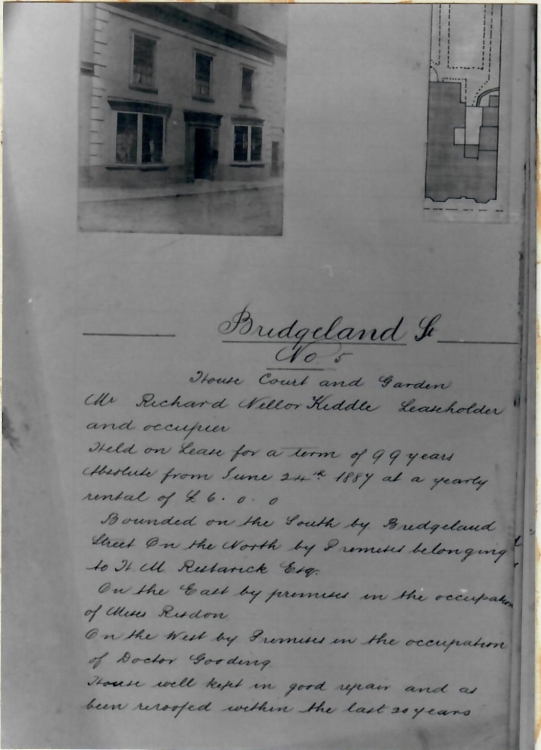 Bridgeland St
No 5
House Court and Garden
Mr Richard Nellor Kiddle Leaseholder
and occupier
Held on Lease for a term of 99 years
Absolute from June 24th 1887 at a yearly
rental of £ 6 . 0 . 0
Bounded on the South by Bridgeland
Street On the North by Premises belonging
to H M Restarick Esq.
On the East by premises in the occupation
of Miss Risdon
On the West by Premises in the occupation
of Doctor Gooding
House well kept in good repair and as
been reroofed within the last 20 years